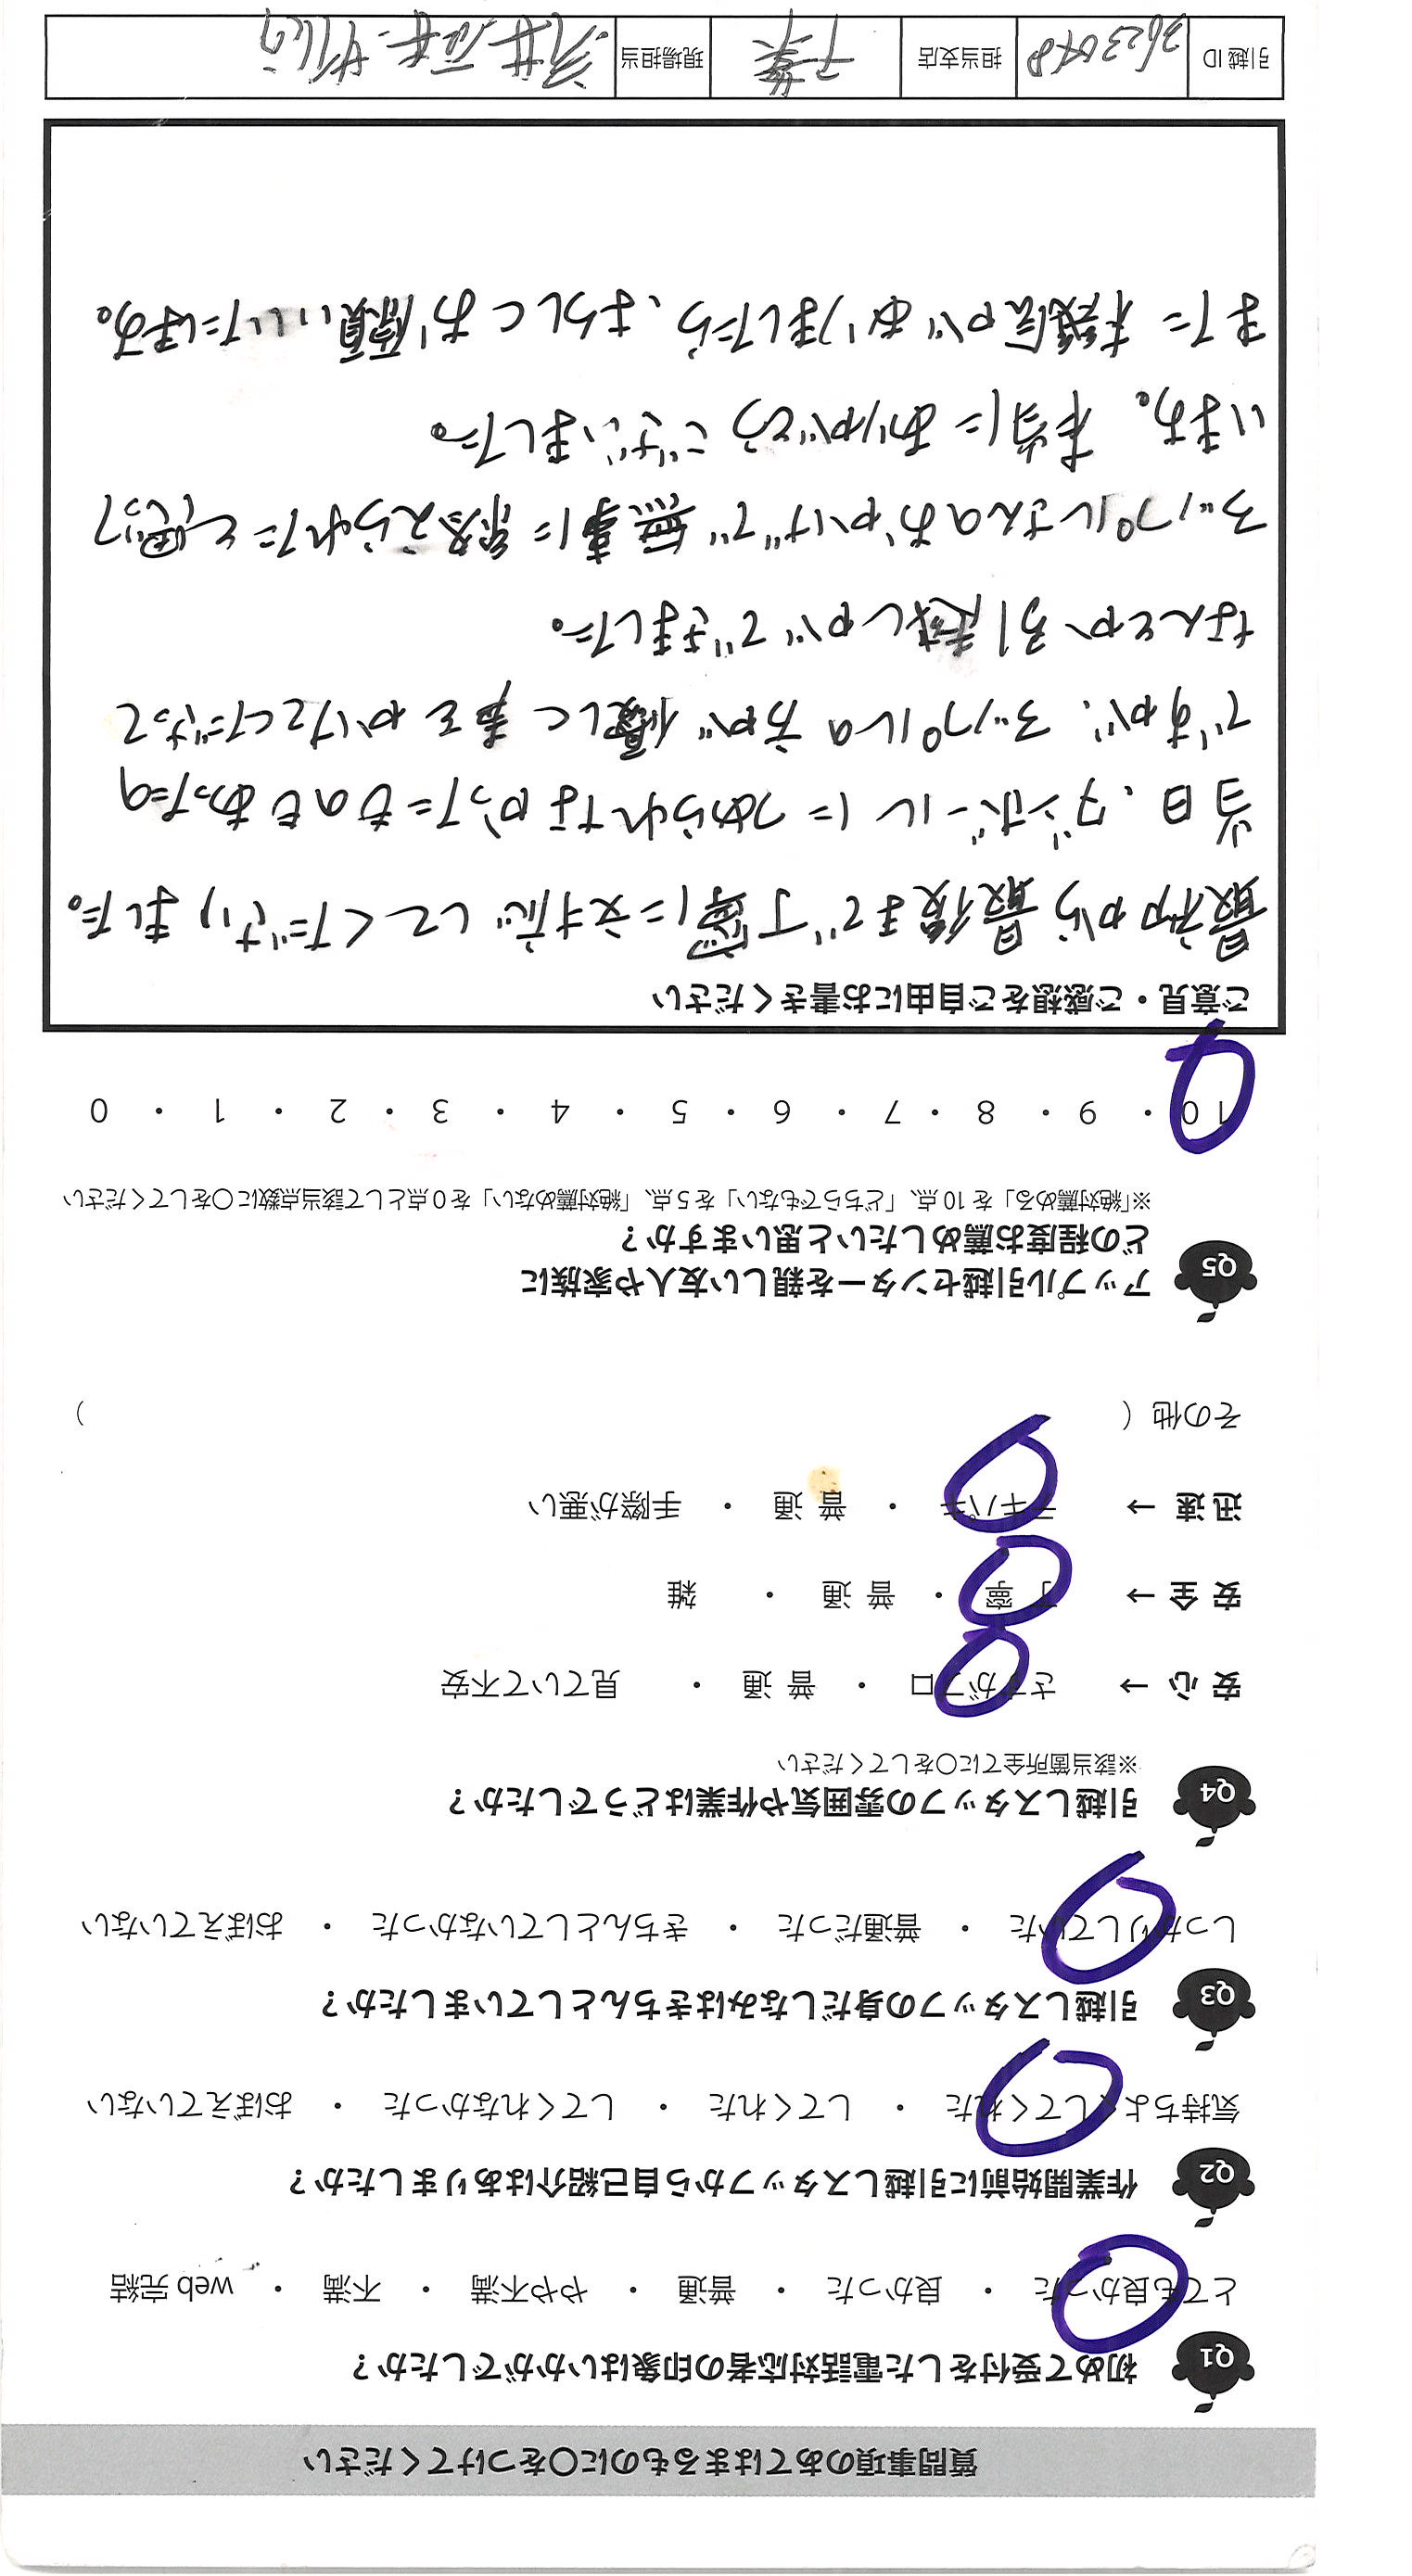 質問事項のあてはまるものに○をつけてください
Q1 初めて受付をした電話対応者の印象はいかがでしたか？
とても良かった ・ 良かった ・ 普通 ・ やや不満 ・ 不満 ・ web 完結
Q2 作業開始前に引越しスタッフから自己紹介はありましたか？
気持ちよくしてくれた ・ してくれた ・ してくれなかった ・ おぼえていない
Q3 引越しスタッフの身だしなみはきちんとしていましたか？
しっかりしていた ・ 普通だった ・ きちんとしていなかった ・ おぼえていない
Q4 引越しスタッフの雰囲気や作業はどうでしたか？
※該当箇所全てに○をしてください
安 心 → さすがプロ ・ 普 通 ・ 見ていて不安
安 全 → 丁 寧 ・ 普 通 ・ 雑
迅 速 → テキパキ ・ 普 通 ・ 手際が悪い
その他（ ）
Q5 アップル引越センターを親しい友人や家族に
どの程度お薦めしたいと思いますか？
※「絶対薦める」を 10 点、「どちらでもない」を 5 点、「絶対薦めない」を 0 点として該当点数に○をしてください
10 ・ 9 ・ 8 ・ 7 ・ 6 ・ 5 ・ 4 ・ 3 ・ 2 ・ 1 ・ 0
ご意見・ご感想をご自由にお書きください
最初から最後まで丁寧に対応してくださりました。
当日、ダンボールにつめられなかったものもあったの
ですが、アップルの方が優しく声をかけてくださって
なんとか引越しができました。
アップルさんのおかげで無事に終えられたと思って
います。本当にありがとうございました。
また機会がありましたら、よろしくお願いいたします。
引越 ID 2623048 担当支店 千葉 現場担当